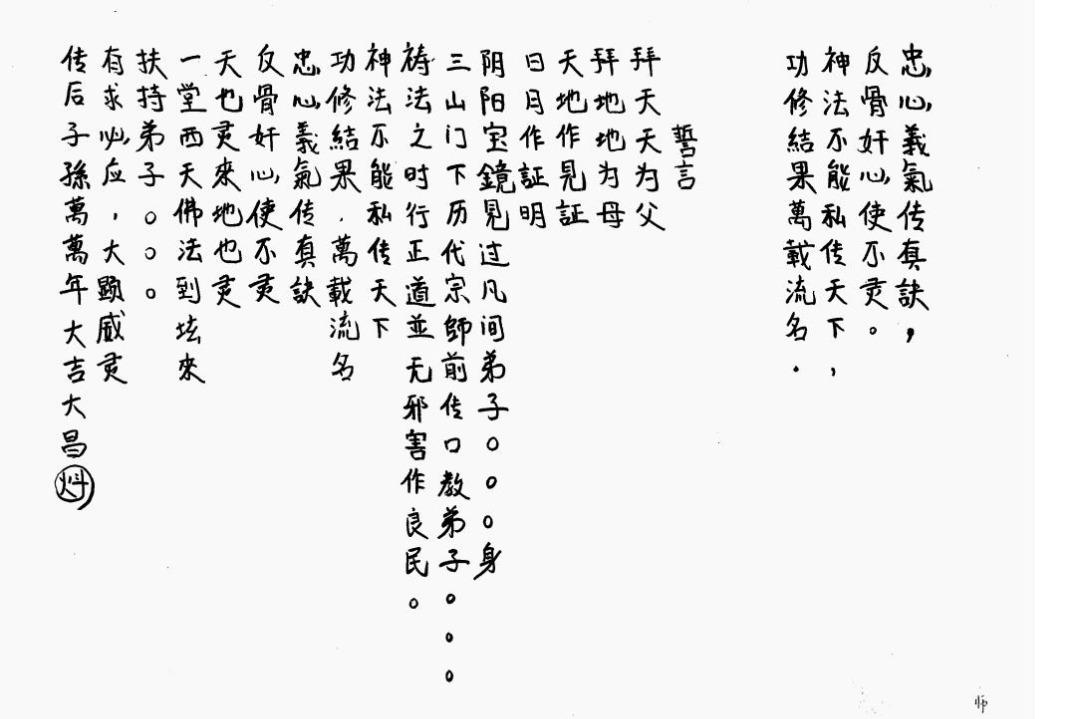 忠心義氣传真訣，
反骨奸心使不灵。
神法不能私传天下，
功修結果萬載流名．
誓言
拜天天为父
拜地地为母
天地作見証
日月作証明
阴阳宝鏡見过凡间弟子○○○身
三山门下历代宗師前传口教弟子○○○
祷法之时行正道並无邪害作良民。
神法不能私传天下
功修結果．萬載流名
忠心義氣传真訣
反骨奸心使不灵
天也灵來地也灵
一堂西天佛法到坛來
扶持弟子○○○
有求必应，大顕威灵
传后子孫萬萬年大吉大昌
师